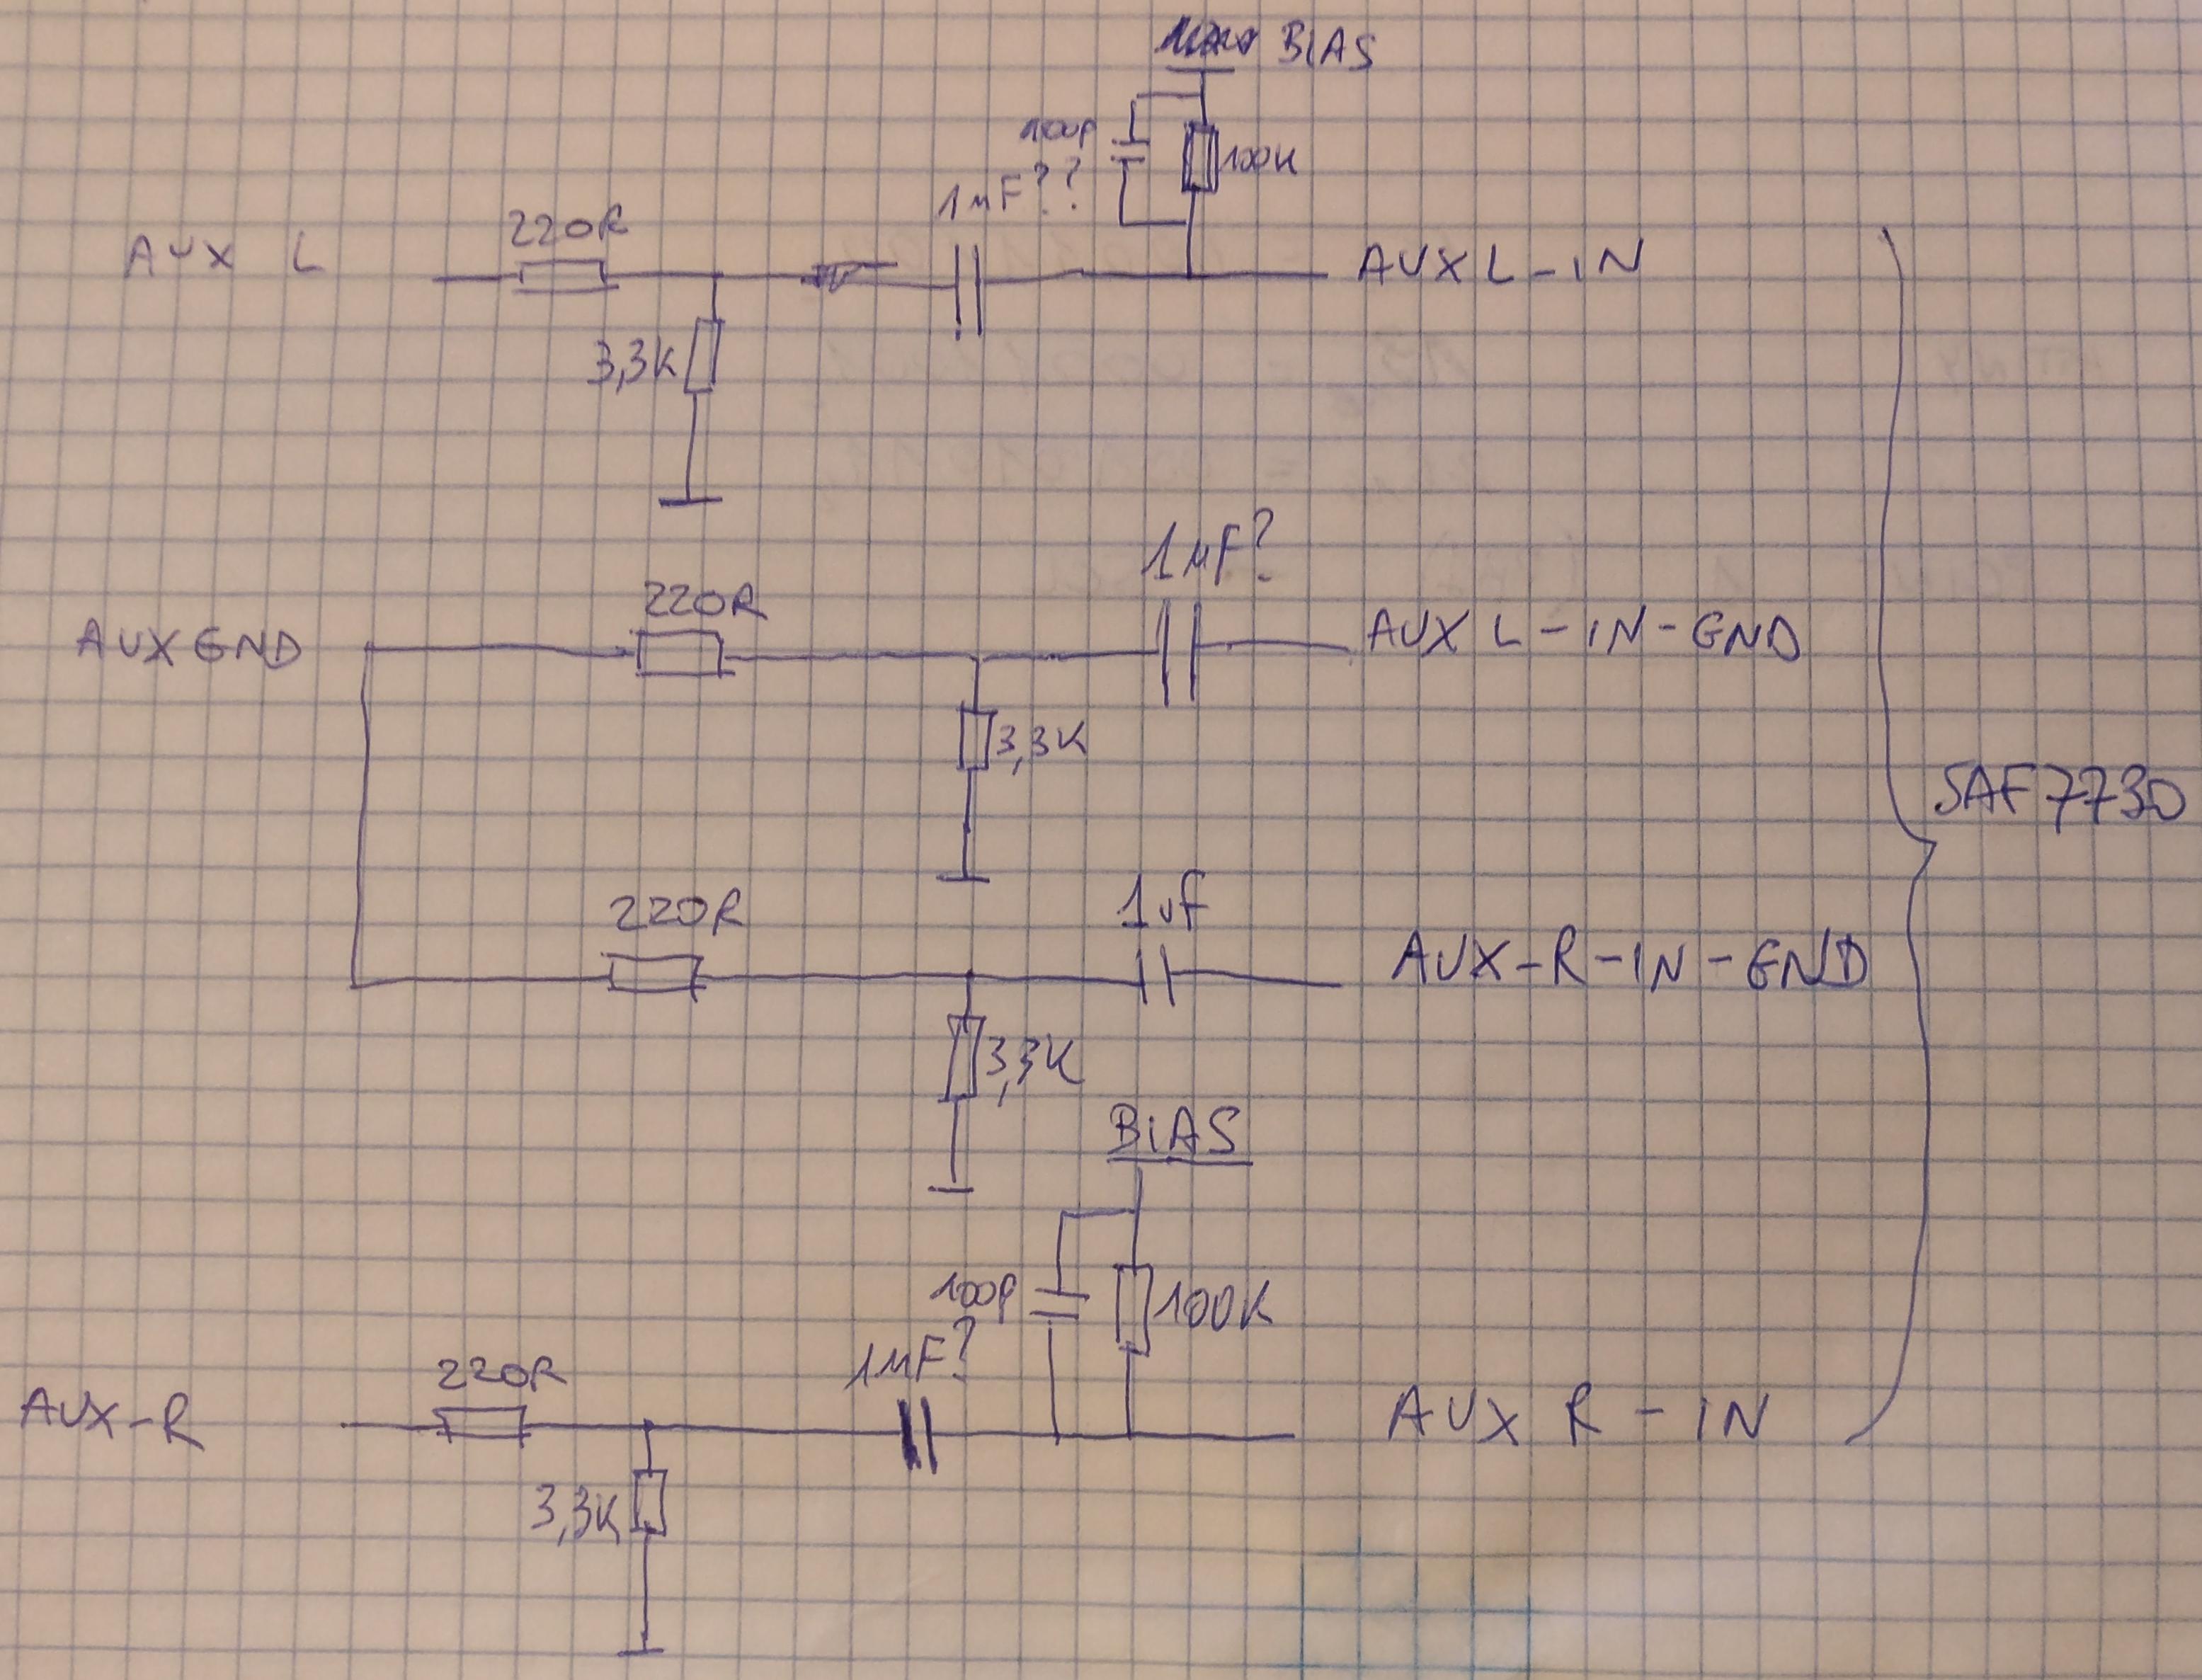 BIAS
100p
100K
1µF??
220R
AUX L
AUX L-IN
3,3K
1µF?
220R
AUX GND
AUX L-IN-GND
3,3K
SAF7730
1uF
220R
AUX-R-IN-GND
3,3K
BiAS
100p
100K
1µF?
220R
AUX-R
AUX R-IN
3,3K